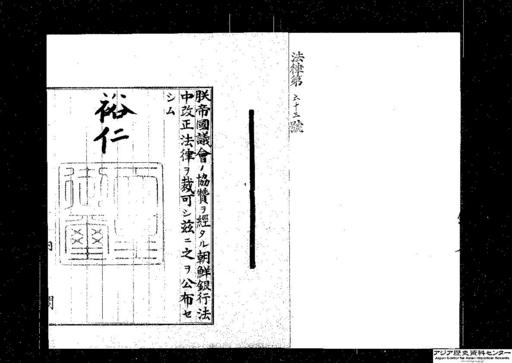 法律第六十二號
朕帝國議會ノ協贊ヲ經タル朝鮮銀行法
中改正法律ヲ裁可シ茲ニ之ヲ公布セ
シム
裕仁
内
閣
アジア歴史資料センター
Japan Center for Asian Historical Records